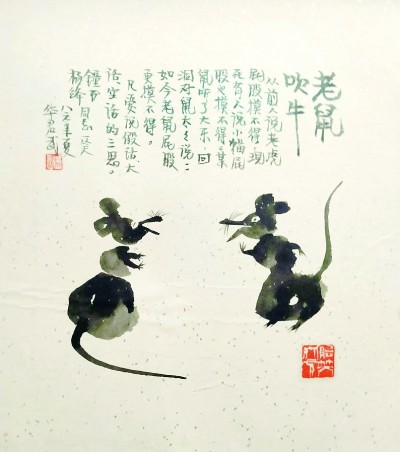 老鼠
吹牛
从前人说老虎
屁股摸不得,现
在有人说小猫屁
股也摸不得。某
鼠听了大乐,回
洞对鼠太太说:
如今老鼠屁股
更摸不得。
凡爱说假话、大
话、空话的三思。
锺书
杨绛 同志一笑
年夏
华君武